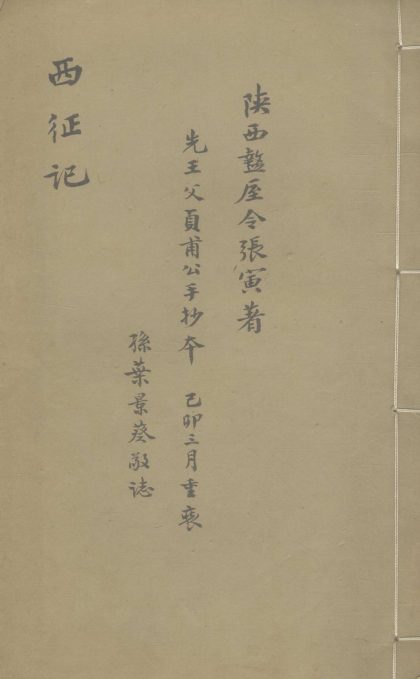 陕西盩厔令張寅著
先王父貢甫公手抄本 己卯三月重裝
孫葉景葵敬誌
西征记